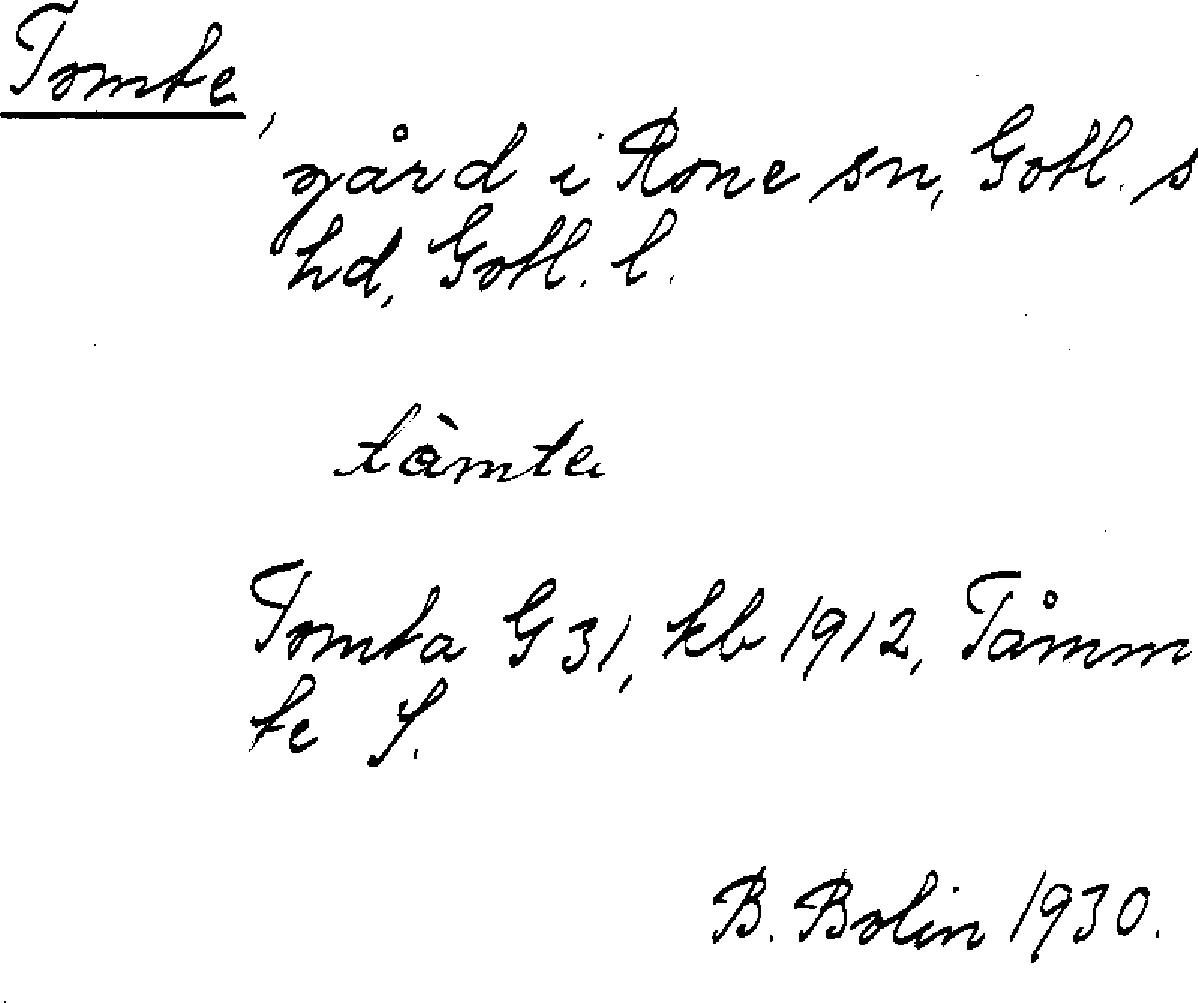 Tomte,
gård i Rone sn, Gotl. s
hd, Gotl. l.
tàmte
Tomta G 31, kb 1912, Tåmm
te S.
B. Bolin 1930.